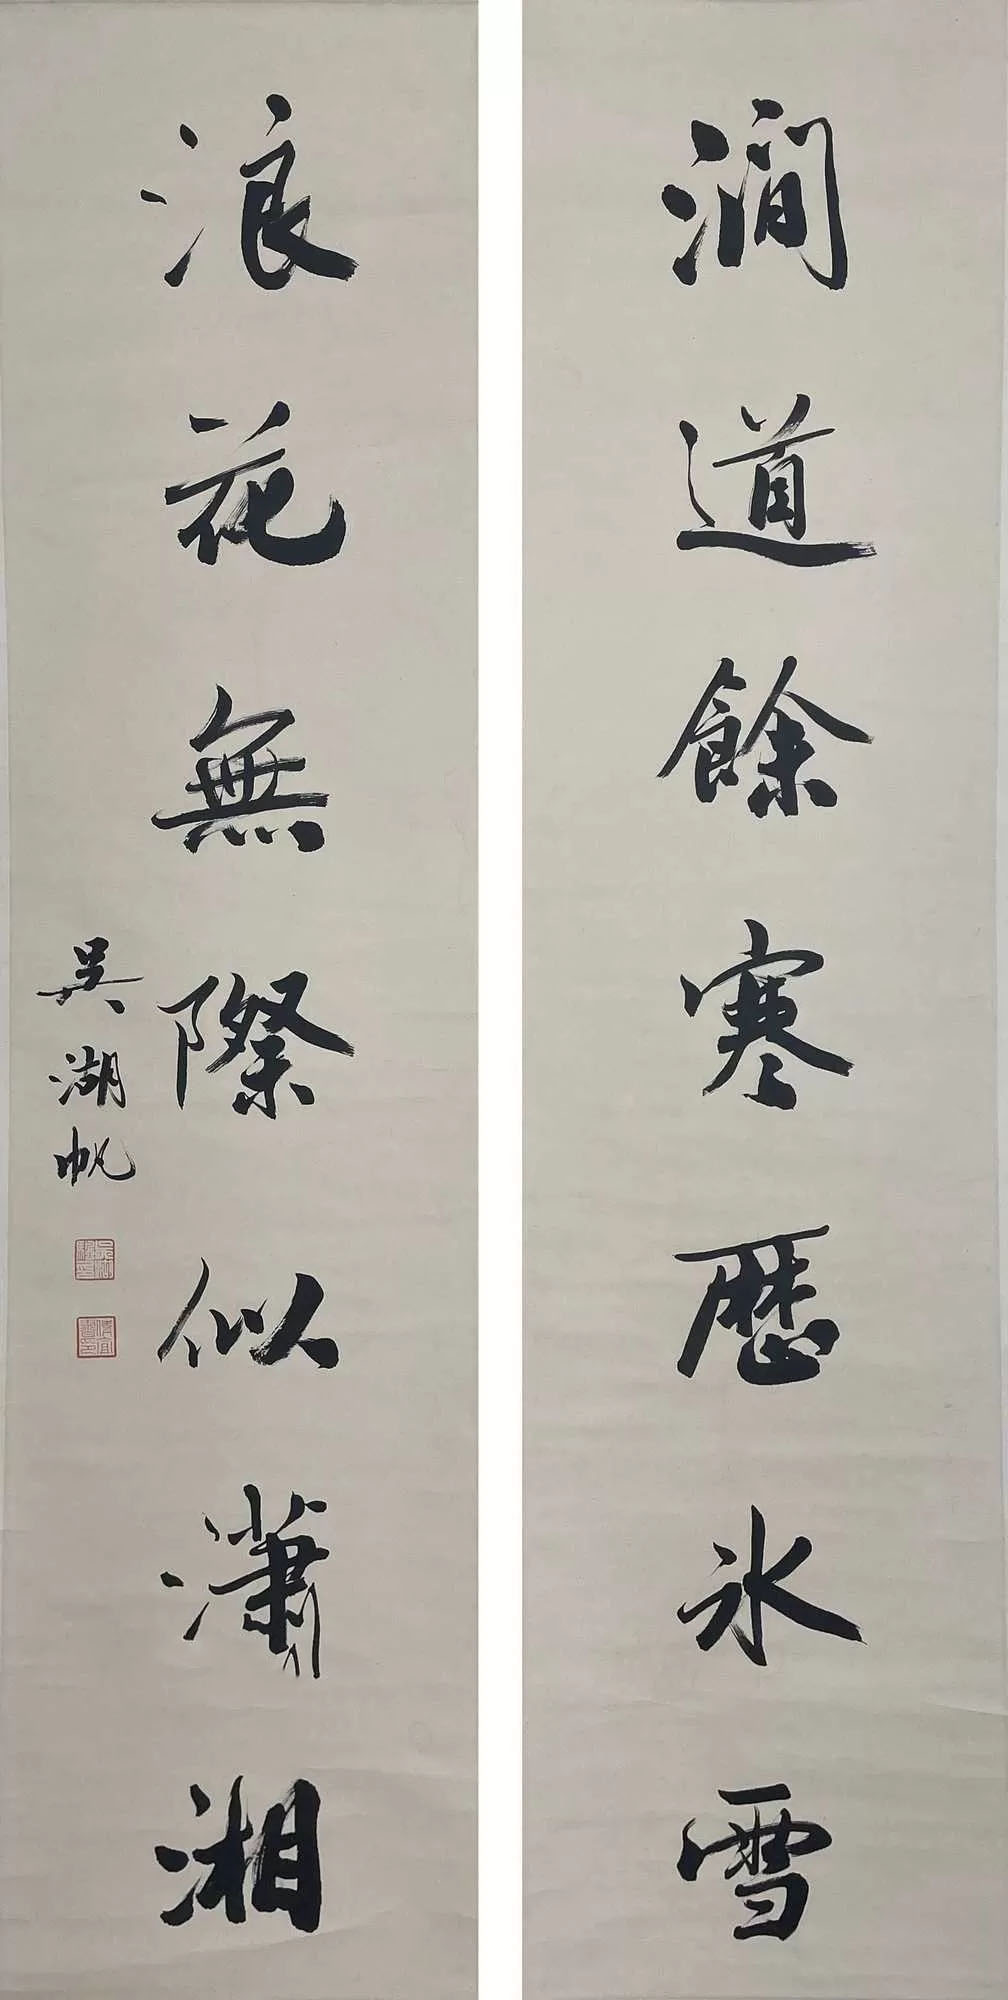 澗道餘寒歷冰雪
浪花無際似瀟湘
吳湖帆